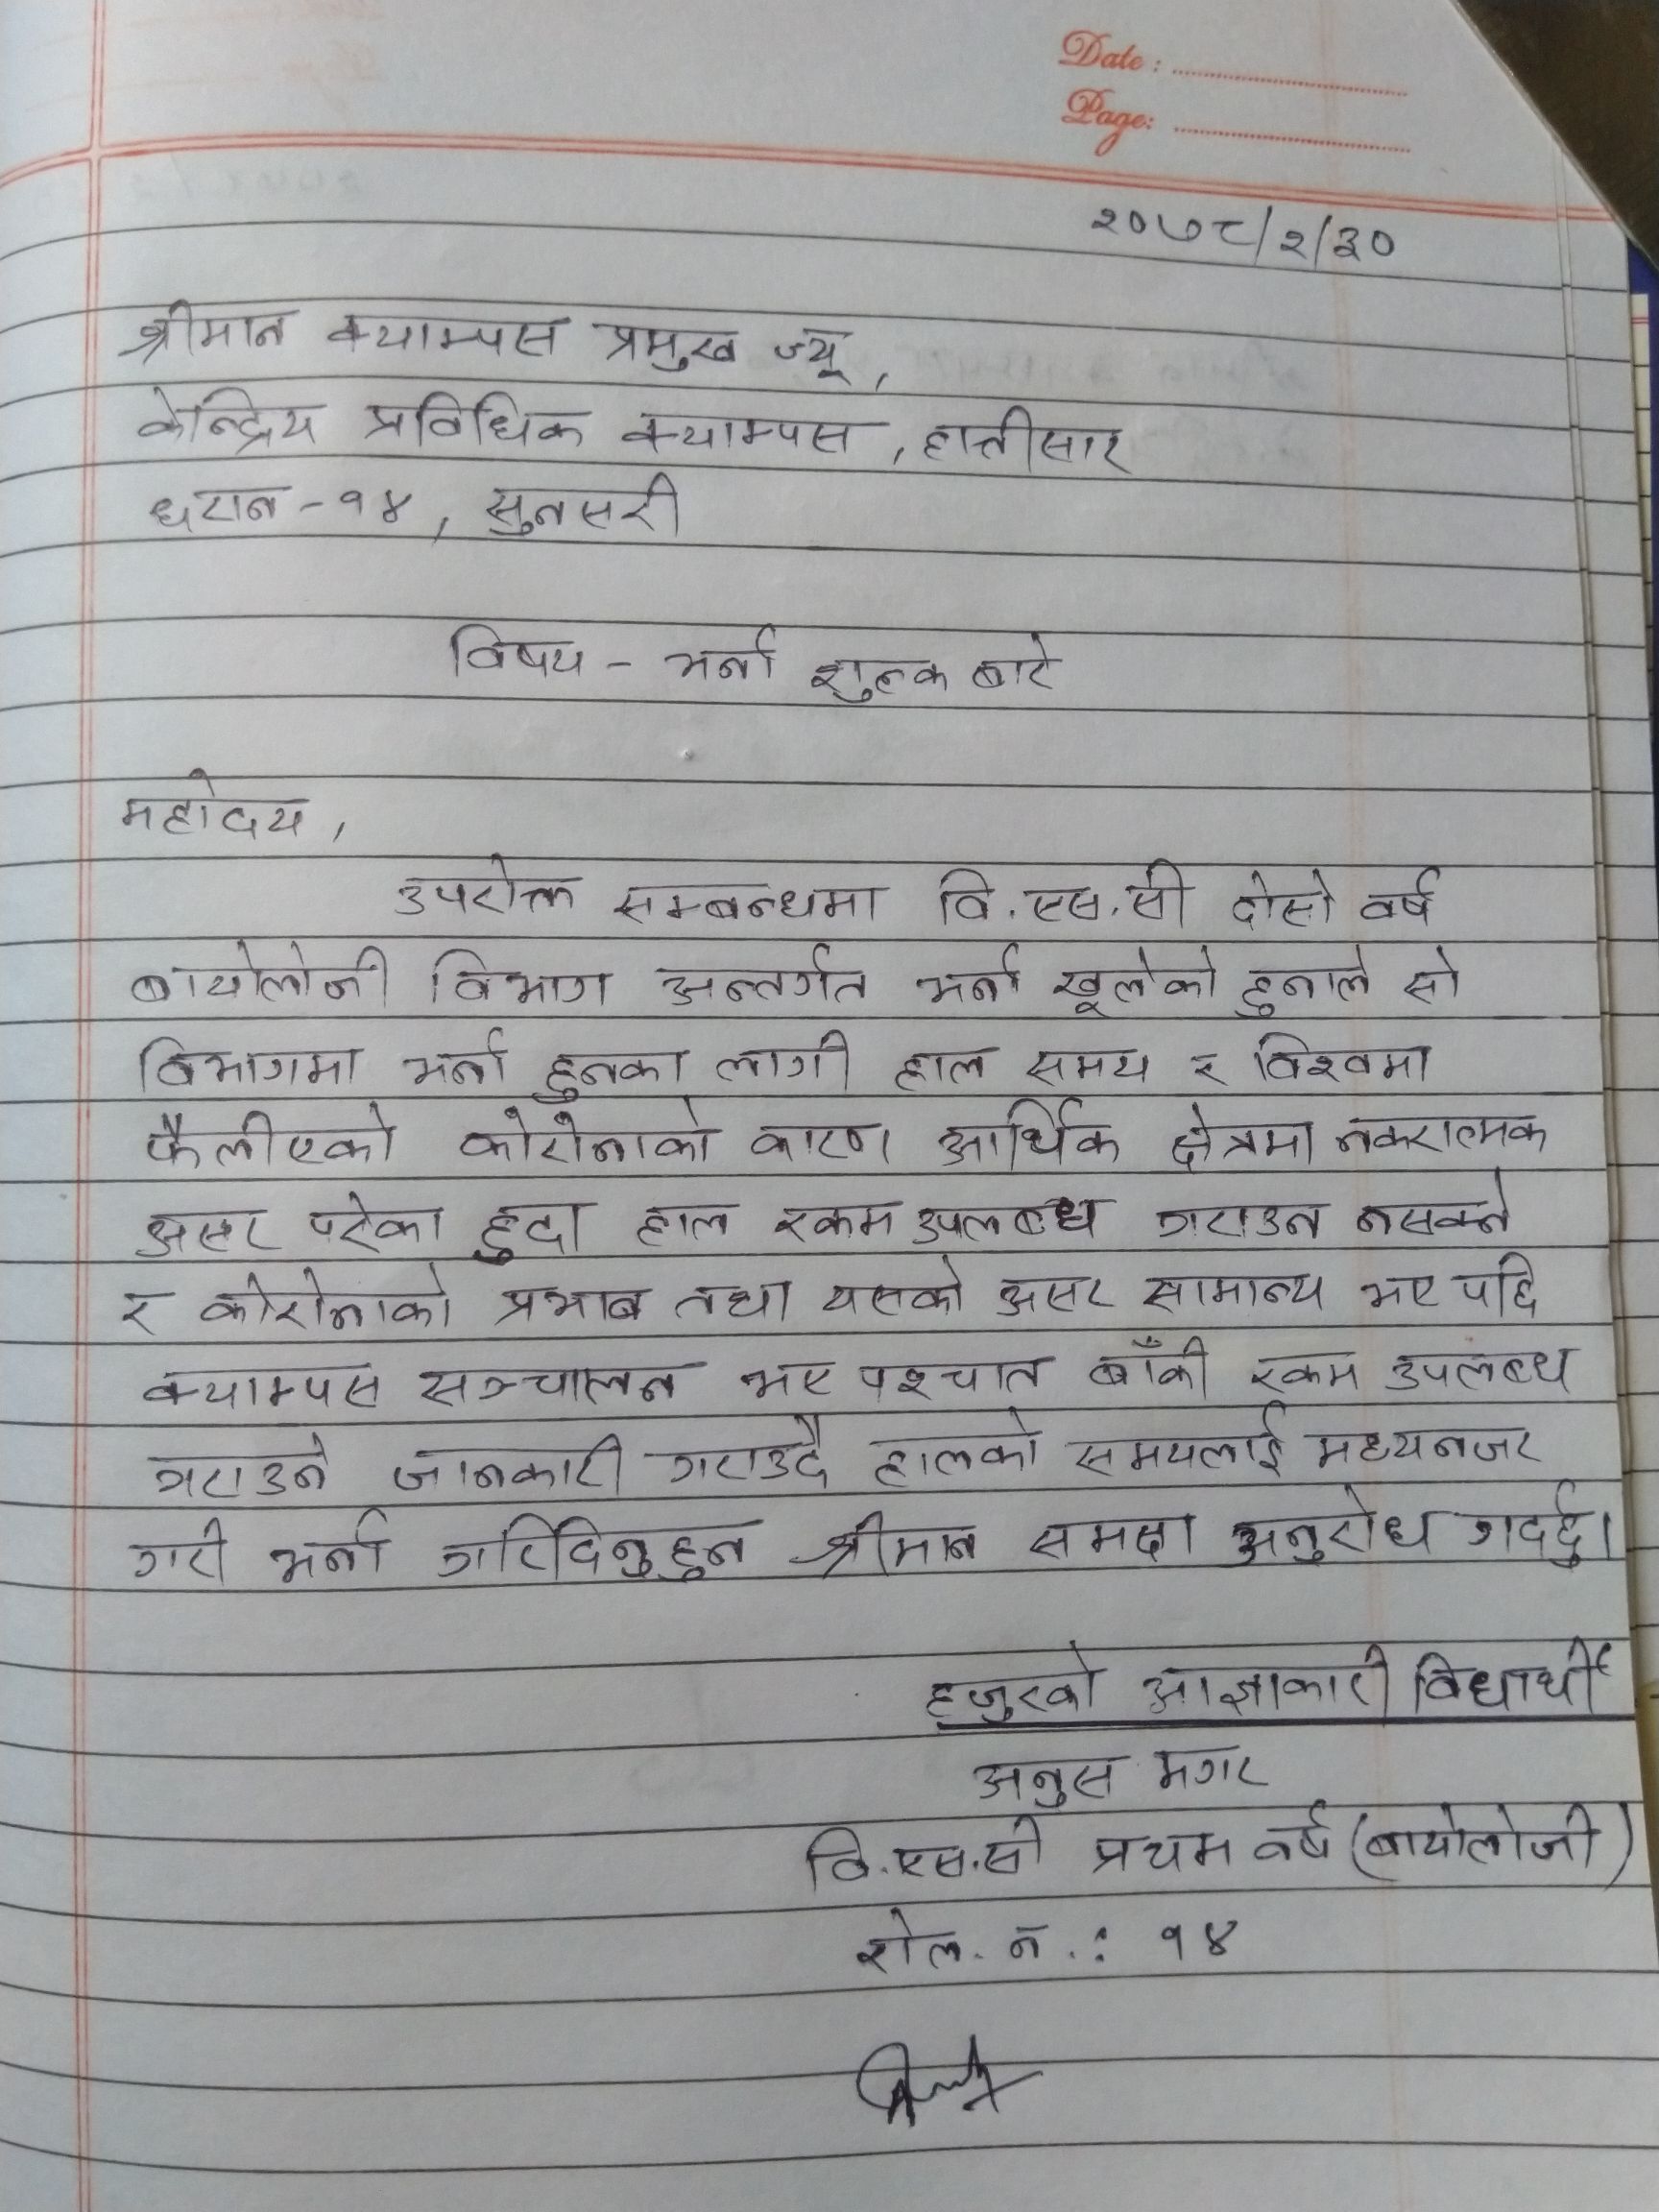 Date :
Page:
२०७८/२/३०
श्रीमान क्याम्पस प्रमुख ज्यू,
केन्द्रिय प्रविधिक क्याम्पस, हात्तीसार
धरान-१४, सुनसरी
विषय - भर्ना शुल्क बारे
महोदय,
उपरोक्त सम्बन्धमा वि.एस.सी दोस्रो वर्ष
बायोलोजी विभाग अन्तर्गत भर्ना खूलेको हुनाले सो
विभागमा भर्ना हुनका लागी हाल समय र विश्वमा
फैलीएको कोरोनाको कारण आर्थिक क्षेत्रमा नकरात्मक
असर परेका हुदा हाल रकम उपलब्ध गराउन नसक्ने
र कोरोनाको प्रभाब तथा यसको असर सामान्य भए पछि
क्याम्पस सञ्चालन भए पश्चात बाँकी रकम उपलब्ध
गराउने जानकारी गराउदै हालको समयलाई मध्यनजर
गरी भर्ना गरिदिनुहुन श्रीमान समक्ष अनुरोध गर्दछु।
हजुरको आज्ञाकारी विधार्थी
अनुस मगर
वि.एस.सी प्रथम वर्ष (बायोलोजी)
रोल. न .: १४